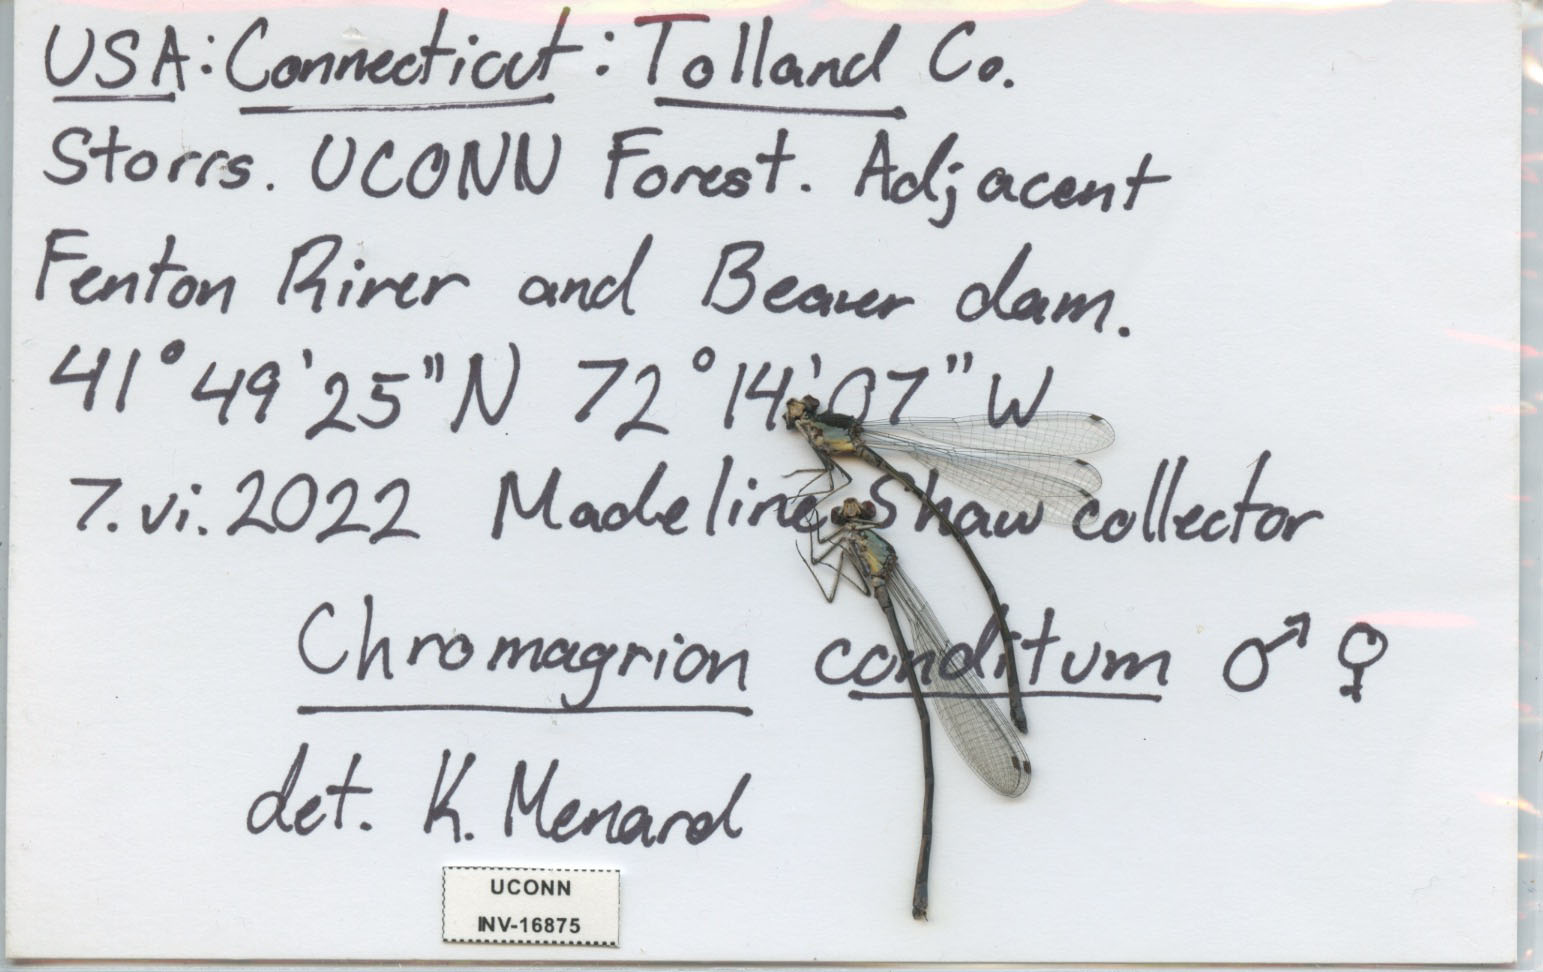 USA: Connecticut: Tolland Co.
Storrs. UCONN Forest. Adjacent
Fenton River and Beaver dam.
41° 49' 25" N 72° 14' 07" W
7.vi.2022 Madeline Shaw collector
Chromagrion conditum ♂ ♀
det. K. Menard
UCONN
INV-16875